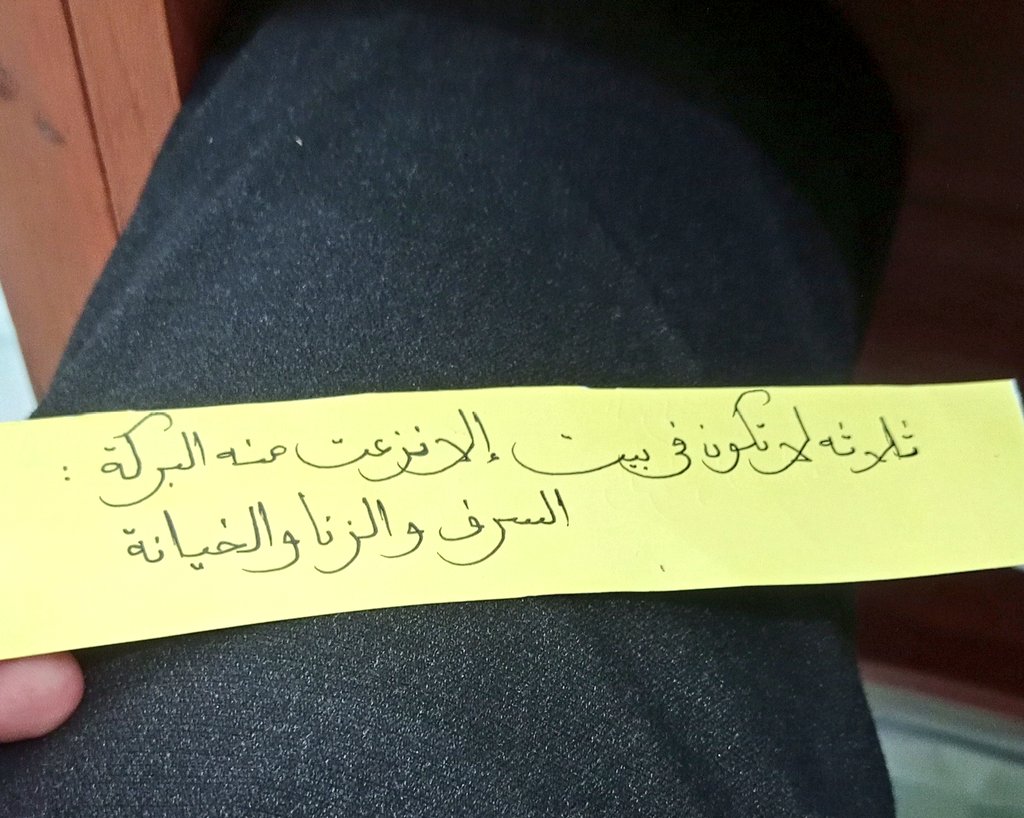 ثلاثه لا تكون في بيت إلا نزعت منه البركة :
السرف والزنا والخيانة